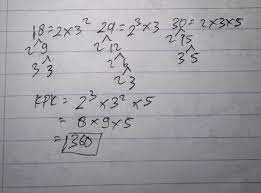 18 = 2 × 3² 24 = 2³ × 3 30 = 2 × 3 × 5
2 9 2 12 2 15
3 3 2 6 3 5
2 3
KPK = 2³ × 3² × 5
= 8 × 9 × 5
= 360